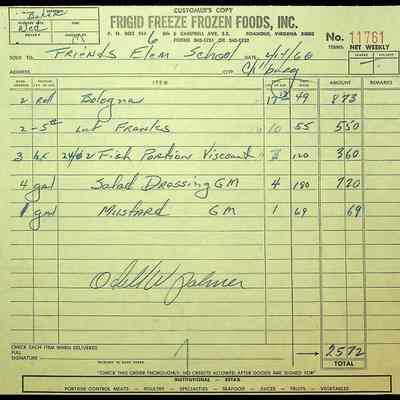 CUSTOMER'S COPY
FRIGID FREEZE FROZEN FOODS, INC.
P. O. BOX
CAMPBELL AVE., S.E.
ROANOKE, VIRGINIA
Wed
No. 11761
TERMS: NET WEEKLY
SOLD TO Friends Elem School DATE 4/7/66
ADDRESS CITY Ch'burg
ITEM AMOUNT REMARKS
2 Roll Bologna 49 873
2-5# Franks 10 55 550
3 bx 24/82 Fish Portion Viscount 3 120 360
4 gal Salad Dressing GM 4 180 720
1 gal Mustard GM 1 69 69
Odell W Palmer
CHECK EACH ITEM WHEN DELIVERED
FULL
SIGNATURE
2572
TOTAL
"CHECK THIS ORDER THOROUGHLY, NO CREDITS ALLOWED AFTER GOODS ARE SIGNED FOR"
INSTITUTIONAL - RETAIL
PORTION CONTROL MEATS — POULTRY — SPECIALTIES — SEAFOOD — JUICES — FRUITS — VEGETABLES